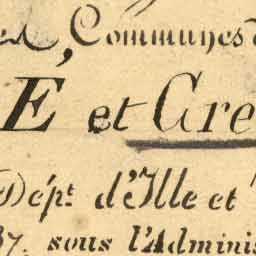 Communes
E et Gre
Dépt. d'Ille et
37. sous l'Adminis